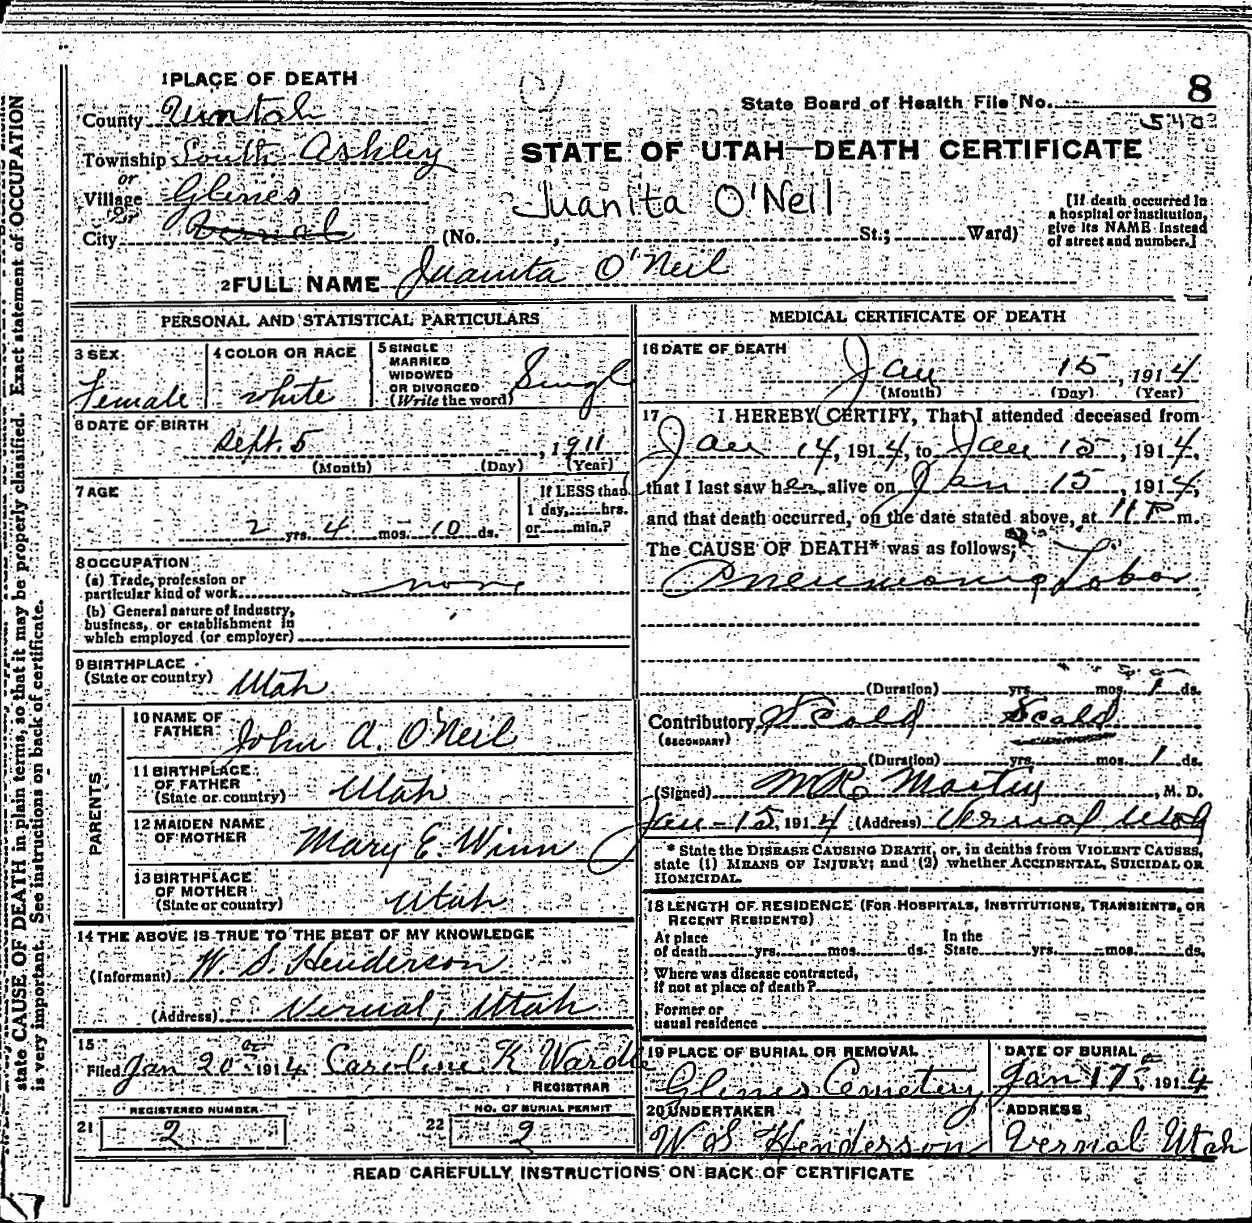 1 PLACE OF DEATH
8
County Uintah
State Board of Health File No.
Township South Ashley
STATE OF UTAH—DEATH CERTIFICATE
or
Village Glines
Juanita O'Neil
or
City Vernal (No. , St.; Ward)
[If death occurred in
a hospital or institution,
give its NAME instead
of street and number.]
2 FULL NAME Juanita O'Neil
PERSONAL AND STATISTICAL PARTICULARS
3 SEX
Female
4 COLOR OR RACE
White
5 SINGLE
MARRIED
WIDOWED
OR DIVORCED
(Write the word) Singl
6 DATE OF BIRTH
Sept. 5, 1911
(Month) (Day) (Year)
7 AGE
2 yrs. 4 mos. 10 ds.
If LESS than
1 day, hrs.
or min.?
8 OCCUPATION
(a) Trade, profession or
particular kind of work none
(b) General nature of industry,
business, or establishment in
which employed (or employer)
9 BIRTHPLACE
(State or country) Utah
PARENTS
10 NAME OF
FATHER John A. O'Neil
11 BIRTHPLACE
OF FATHER
(State or country) Utah
12 MAIDEN NAME
OF MOTHER Mary E. Winn
13 BIRTHPLACE
OF MOTHER
(State or country) Utah
14 THE ABOVE IS TRUE TO THE BEST OF MY KNOWLEDGE
(Informant) W. S. Henderson
(Address) Vernal, Utah
15
Filed Jan 20 1914 Caroline K Wardle
REGISTRAR
REGISTERED NUMBER
21 2
NO. OF BURIAL PERMIT
22 2
MEDICAL CERTIFICATE OF DEATH
16 DATE OF DEATH
Jan 15, 1914
(Month) (Day) (Year)
17 I HEREBY CERTIFY, That I attended deceased from
Jan 14, 1914, to Jan 15, 1914,
that I last saw her alive on Jan 15, 1914,
and that death occurred, on the date stated above, at 11 P m.
The CAUSE OF DEATH* was as follows:
Pneumonia Lobar
(Duration) yrs. mos. 1 ds.
Contributory Scald Scald
(SECONDARY)
(Duration) yrs. mos. 1 ds.
(Signed) , M. D.
Jan-15, 1914 (Address) Vernal Utah
* State the DISEASE CAUSING DEATH, or, in deaths from VIOLENT CAUSES,
state (1) MEANS OF INJURY; and (2) whether ACCIDENTAL, SUICIDAL OR
HOMICIDAL.
18 LENGTH OF RESIDENCE (FOR HOSPITALS, INSTITUTIONS, TRANSIENTS, OR
RECENT RESIDENTS)
At place
of death yrs. mos. ds.
In the
State yrs. mos. ds.
Where was disease contracted,
if not at place of death?
Former or
usual residence
19 PLACE OF BURIAL OR REMOVAL
Glines Cemetery
DATE OF BURIAL
Jan 17, 1914
20 UNDERTAKER
W S Henderson
ADDRESS
Vernal Utah
READ CAREFULLY INSTRUCTIONS ON BACK OF CERTIFICATE
state CAUSE OF DEATH in plain terms, so that it may be properly classified. Exact statement of OCCUPATION
is very important. See instructions on back of certificate.